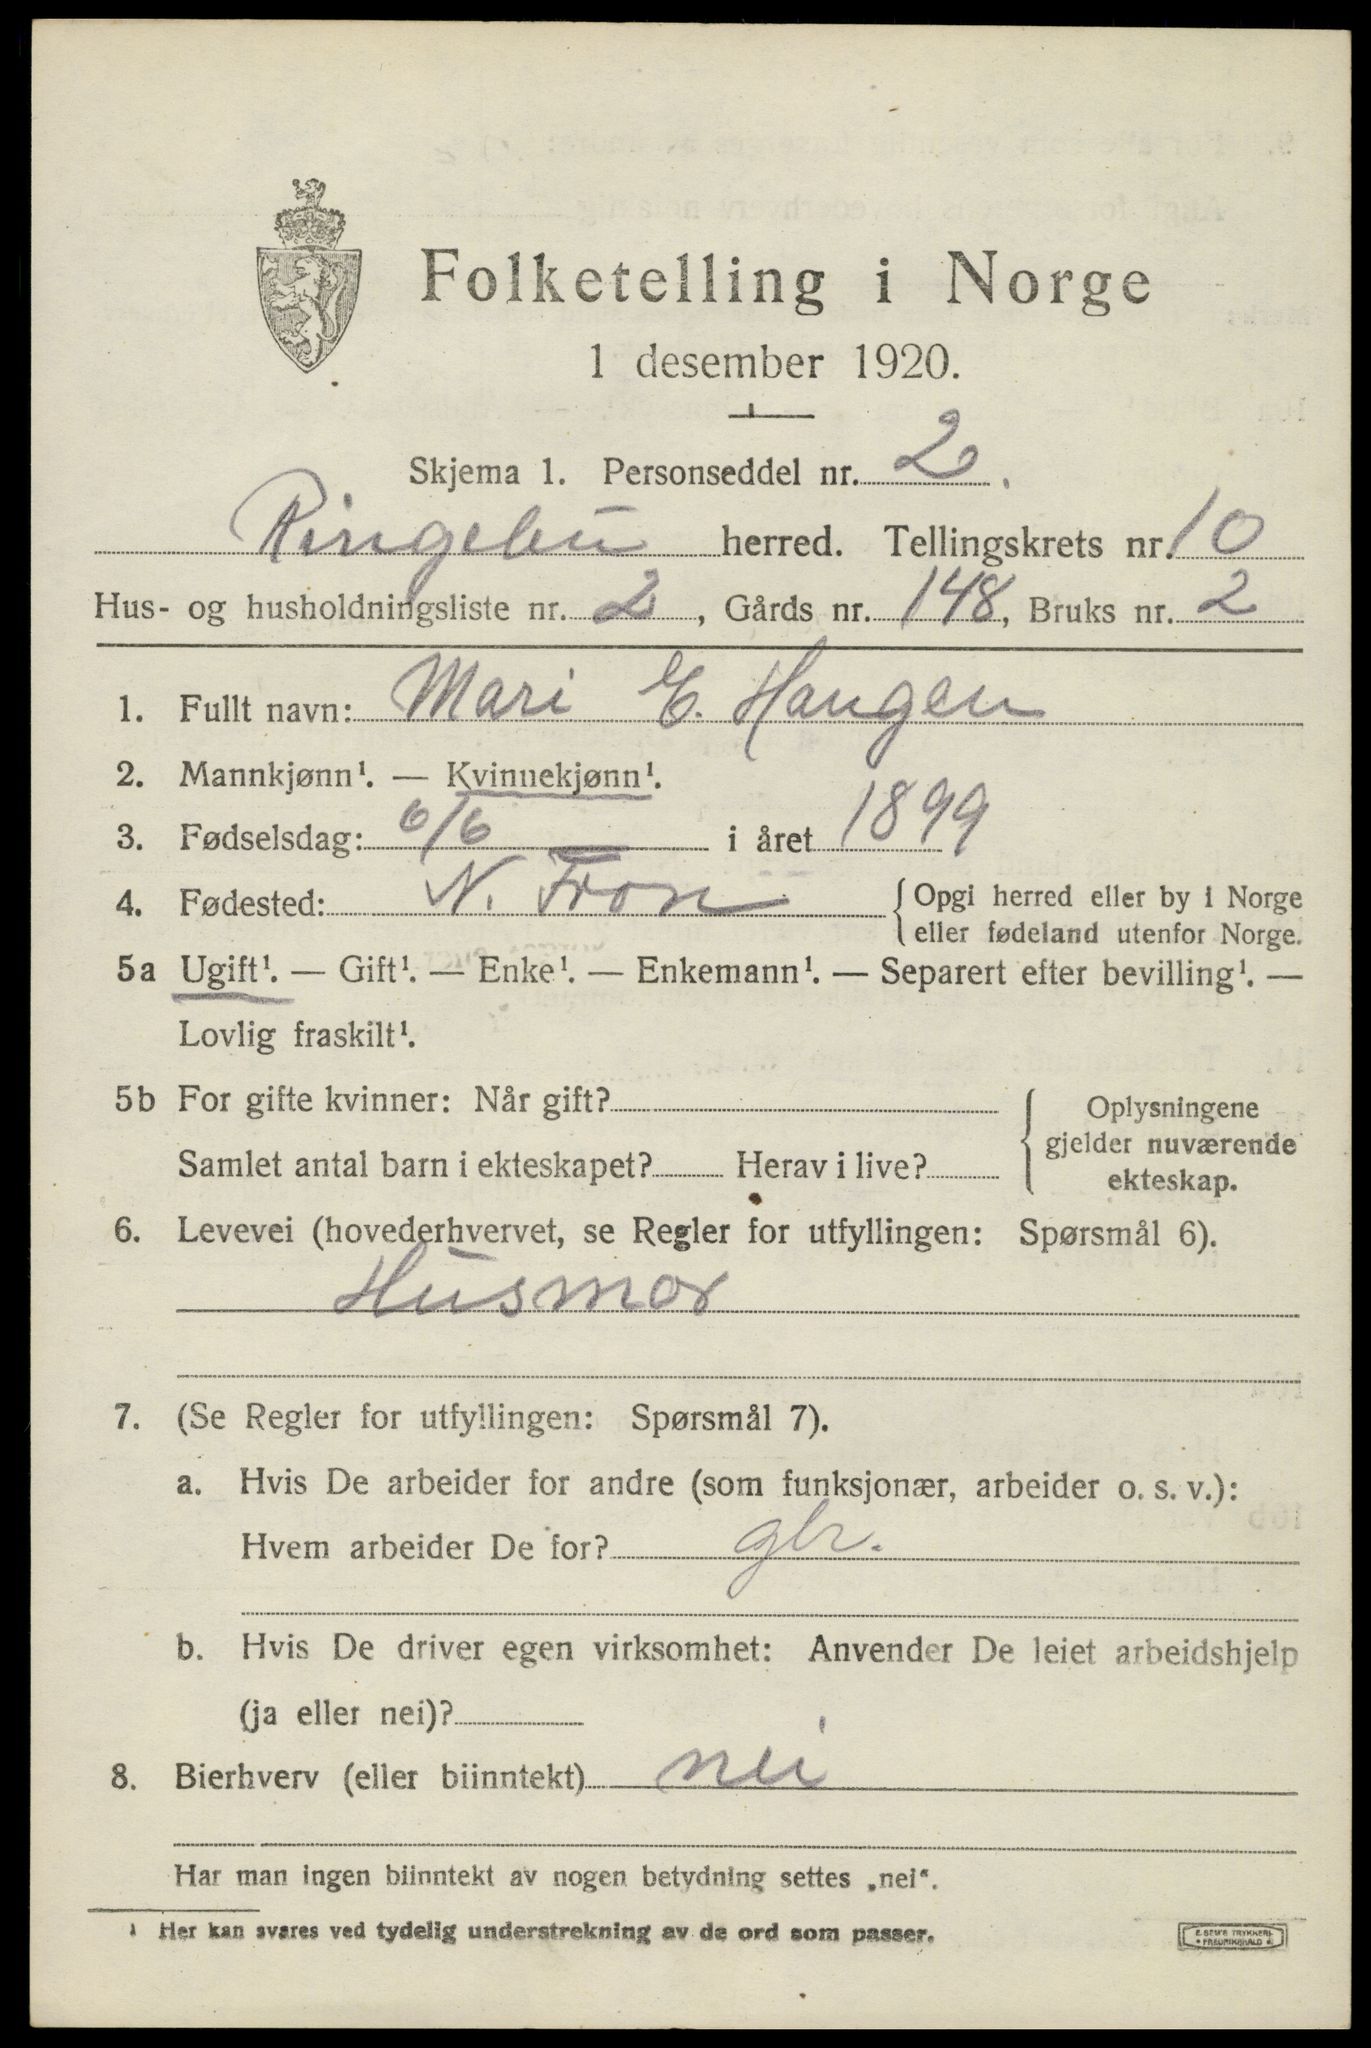 Folketelling i Norge
1 desember 1920.
Skjema 1. Personseddel nr. 2.
Ringebu herred. Tellingskrets nr. 10
Hus- og husholdningsliste nr. 2, Gårds nr. 148, Bruks nr. 2
1. Fullt navn: Mari E. Haugen
2. Mannkjønn¹. — Kvinnekjønn¹.
3. Fødselsdag: 6/6 i året 1899
4. Fødested: N. Fron { Opgi herred eller by i Norge
eller fødeland utenfor Norge.
5a Ugift¹. — Gift¹. — Enke¹. — Enkemann¹. — Separert efter bevilling¹. —
Lovlig fraskilt¹.
5b For gifte kvinner: Når gift? { Oplysningene
gjelder nuværende
Samlet antal barn i ekteskapet? Herav i live?
ekteskap.
6. Levevei (hovederhvervet, se Regler for utfyllingen: Spørsmål 6).
Husmor
7. (Se Regler for utfyllingen: Spørsmål 7).
a. Hvis De arbeider for andre (som funksjonær, arbeider o. s. v.):
Hvem arbeider De for? gbr.
b. Hvis De driver egen virksomhet: Anvender De leiet arbeidshjelp
(ja eller nei)?
8. Bierhverv (eller biinntekt) nei
Har man ingen biinntekt av nogen betydning settes „nei“.
¹ Her kan svares ved tydelig understrekning av de ord som passer.
E. SEM'S TRYKKERI
• FREDRIKSHALD •